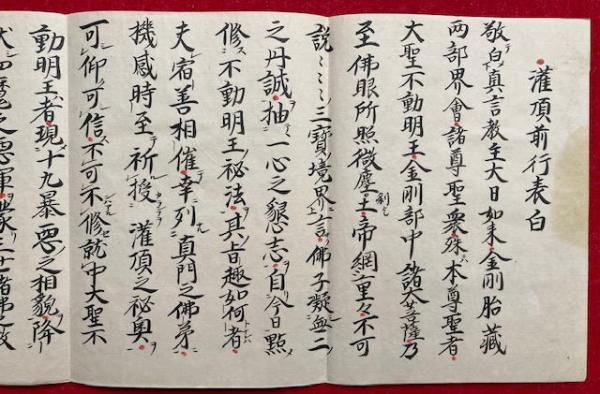 灌頂前行表白
敬白真言教主大日如来金剛胎藏
両部界會諸尊聖衆殊本尊聖者
大聖不動明王金剛部中諸大菩薩乃
至佛眼所照微塵土帝網重々不可
説ミミミ三寶境界言佛子凝無二
之丹誠抽一心之懇志自今日點
修不動明王祕法其旨趣如何者
夫宿善相催幸列真門之佛弟
機感時至祈授灌頂之祕奥
可仰可信不可不修就中大聖不
動明王者現十九暴惡之相貌降